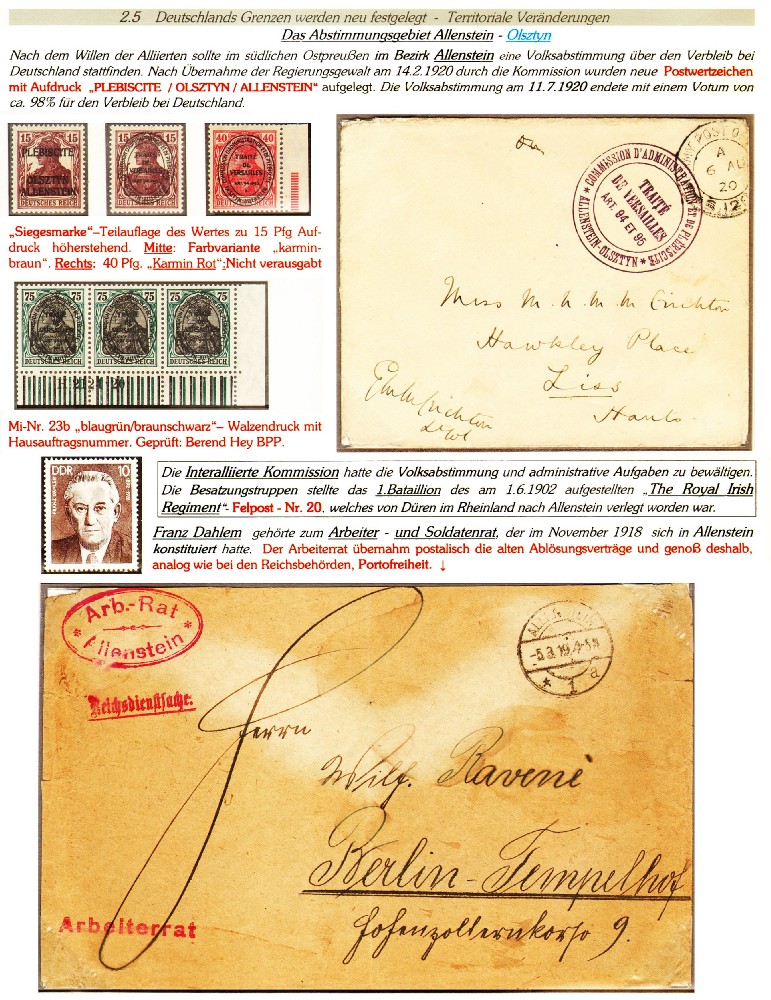 2.5 Deutschlands Grenzen werden neu festgelegt - Territoriale Veränderungen
Das Abstimmungsgebiet Allenstein - Olsztyn
Nach dem Willen der Alliierten sollte im südlichen Ostpreußen im Bezirk Allenstein eine Volksabstimmung über den Verbleib bei
Deutschland stattfinden. Nach Übernahme der Regierungsgewalt am 14.2.1920 durch die Kommission wurden neue Postwertzeichen
mit Aufdruck „PLEBISCITE / OLSZTYN / ALLENSTEIN“ aufgelegt. Die Volksabstimmung am 11.7.1920 endete mit einem Votum von
ca. 98% für den Verbleib bei Deutschland.
15 15
PLÉBISCITE
OLSZTYN
ALLENSTEIN
DEUTSCHES REICH
15 15
TRAITÉ
DE
VERSAILLES
ART. 94 ET 95
DEUTSCHES REICH
40 40
TRAITÉ
DE
VERSAILLES
ART. 94 ET 95
DEUTSCHES REICH
„Siegesmarke“–Teilauflage des Wertes zu 15 Pfg Auf-
druck höherstehend. Mitte: Farbvariante „karmin-
braun“. Rechts: 40 Pfg. „Karmin Rot“;Nicht verausgabt
75 75 75 75 75 75
DEUTSCHES REICH DEUTSCHES REICH DEUTSCHES REICH
Mi-Nr. 23b „blaugrün/braunschwarz“– Walzendruck mit
Hausauftragsnummer. Geprüft: Berend Hey BPP.
COMMISSION D'ADMINISTRATION ET DE PLÉBISCITE
* ALLENSTEIN-OLSZTYN *
TRAITÉ
DE VERSAILLES
ART. 94 ET 95
POST O
A
6 AU
20
Miss M. M. M. Crichton
Hawkley Place
Liss
Hants.
DDR 10
FRANZ DAHLEM
Die Interalliierte Kommission hatte die Volksabstimmung und administrative Aufgaben zu bewältigen.
Die Besatzungstruppen stellte das 1.Bataillion des am 1.6.1902 aufgestellten „The Royal Irish
Regiment“- Felpost - Nr. 20, welches von Düren im Rheinland nach Allenstein verlegt worden war.
Franz Dahlem gehörte zum Arbeiter - und Soldatenrat, der im November 1918 sich in Allenstein
konstituiert hatte. Der Arbeiterrat übernahm postalisch die alten Ablösungsverträge und genoß deshalb,
analog wie bei den Reichsbehörden, Portofreiheit. ↓
Arb.-Rat
* Allenstein *
Reichsdienstsache.
ALLENSTEIN
-5.3.19.4-5N
* 1 a
Herrn
Wilf. Ravené
Berlin-Tempelhof
Hohenzollernkorso 9.
Arbeiterrat